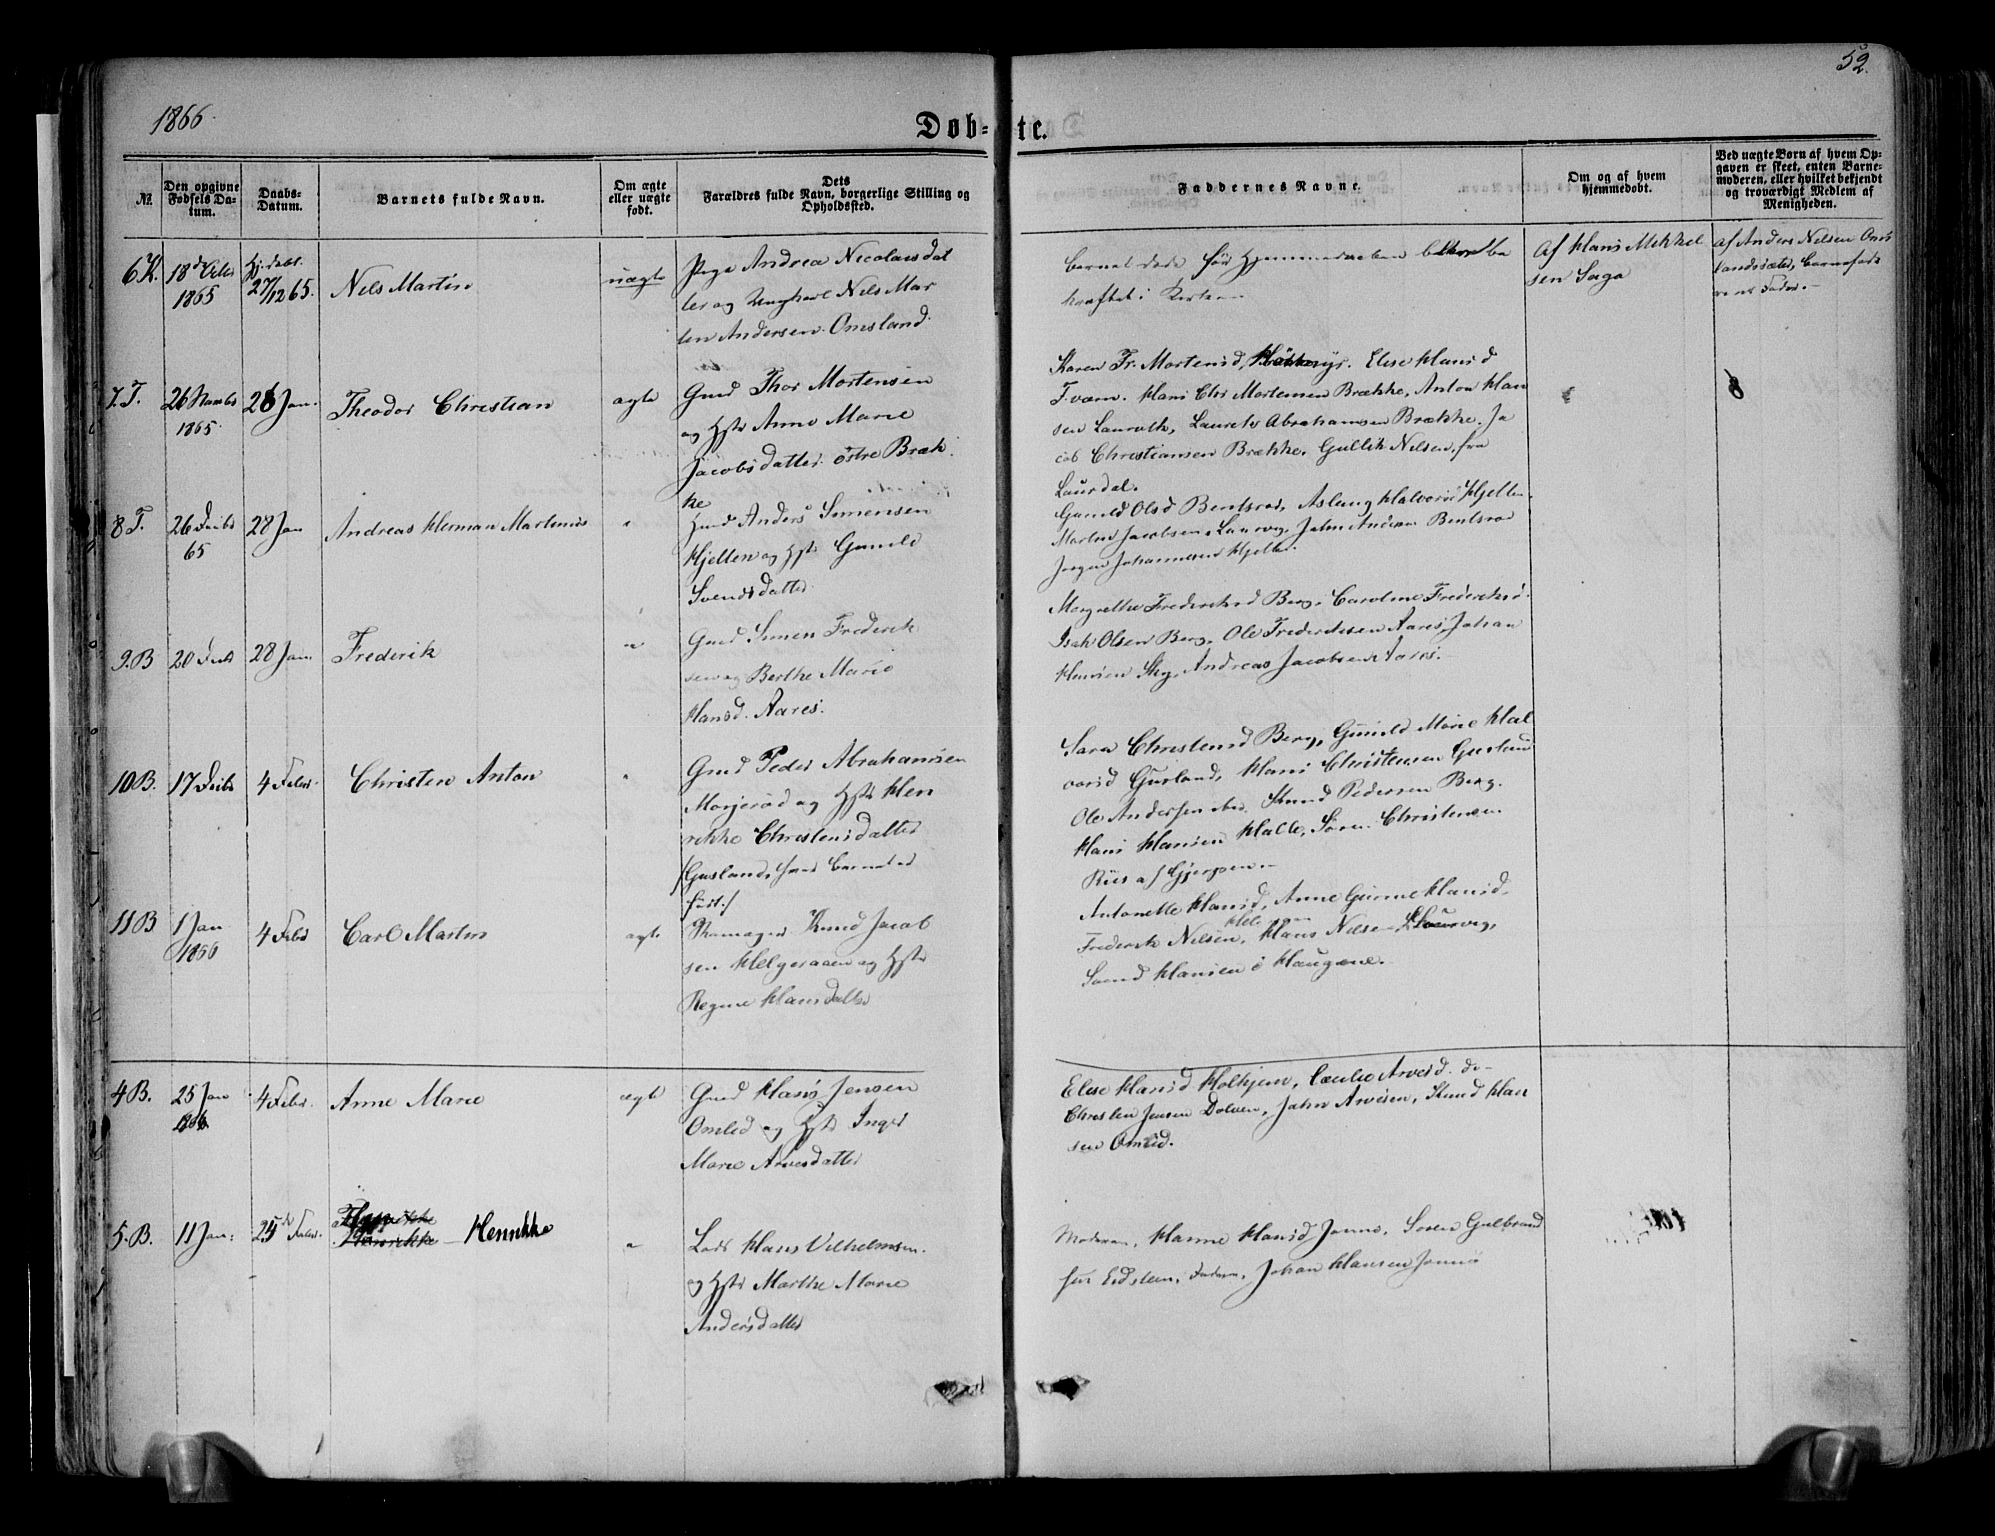 52.
1866.
Døb-te.
№
Den opgivne Fødsels Da-tum.
Daabs-Datum.
Barnets fulde Navn.
Om ægte eller uægte født.
Dets Forældres fulde Navn, borgerlige Stilling og Opholdssted.
Faddernes Navne.
Om og af hvem hjemmedøbt.
Ved uægte Børn af hvem Op-gaven er skeet, enten Barne-moderen, eller hvilket bekjendt og troværdigt Medlem af Menigheden.
6K.
1865
Hjdøbt. 27/12 65.
Nels Martin
uægte
Pige Andrea Nicolaisdat
ter og Ungkarl Nils Mar
tin Andersen Omsland.
Barnet døde før Hjemmedaaben
kræftet i Kirken
Af Hans Mikkel
sen Saga
af Anders Nilsen Oms
landsæter, Barnefade
rens Fader.
7.T.
26 Novbr
1865.
28 Jan.
Theodor Christian
ægte
Gmd Thor Mortensen
og Hstr Anne Marie
Jacobsdatter østre Bræk
ke
Karen Fr. Mortensd, Elise Hansd
Tvæm. Hans Chr Mortensen Brække, Anton Han
sen Laurvik, Laurits Abrahamsen Brække. Ja
cob Christiansen Brække, Gullik Nilsen, fra
Laurdal.
8T.
26 Decbr
65
28 Jan
Andreas Herman Martinius
"
Anders Simensen
Hjellen og Hstr Gunild
Svendsdatter
Gunild Olsd Bentsrød, Aslaug Halvorsd Hjellen
Martin Jacobsen, Laurvig, John Bentsrød
Jørgen Johannesen Hjellen.
9.B
20
28 Jan
Frederik
"
Gmd Simen Frederik
sen og Berthe Marie
Hansd. Aarøs.
Margrethe Frederiksd Berg, Caroline Frederiksd.
Isak Olsen Berg, Ole Frederiksen Aarøs, Johan
Hansen Sky, Andreas Jacobsen Aarøs.
10B.
17 Decbr
4 Febr.
Christen Anton
"
Gmd Peder Abrahamsen
Morjerød og Hstr Hen
rikke Christensdatter
/Gusland, hvor Barnet er
født./
Sara Christensd Berg, Gunild Marie Hal
vorsd Gusland, Hans Christensen Gusland
Ole Andersen ibd. Knud Pedersen Berg.
Hans Hansen Halle, Søren Christensen
Riis af Gjerpen.
11B
1 Jan
1866
4 Febr
Carl Martin
ægte
Knud Jacob
sen Helgeraaen og Hstr
Regine Hansdatter
Antonette Hansd, Anne Gurine Hansd.
Frederik Nilsen, Hans Nilsen, Laurvig,
Svend Hansen i Haugene.
4B.
25 Jan
1866
4 Febr.
Anne Marie
ægte
Gmd Hans Jensen
Omlid og Hstr Inger
Marie Arvesdatter
Else Hansd Holhjem, Cecilie Arvesd. do
Christen Jensen Dolven, John Arvesen, Knud Han
sen Omlid.
5.B.
11 Jan:
25 Febr.
Henrikke
"
Lods Hans Vilhelmsen
og Hstr Marthe Marie
Andersdatter
Moderen, Hanne Hansd Jonnø, Søren Gulbrand
sen Eidsten, Faderen, Johan Hansen Jonnø